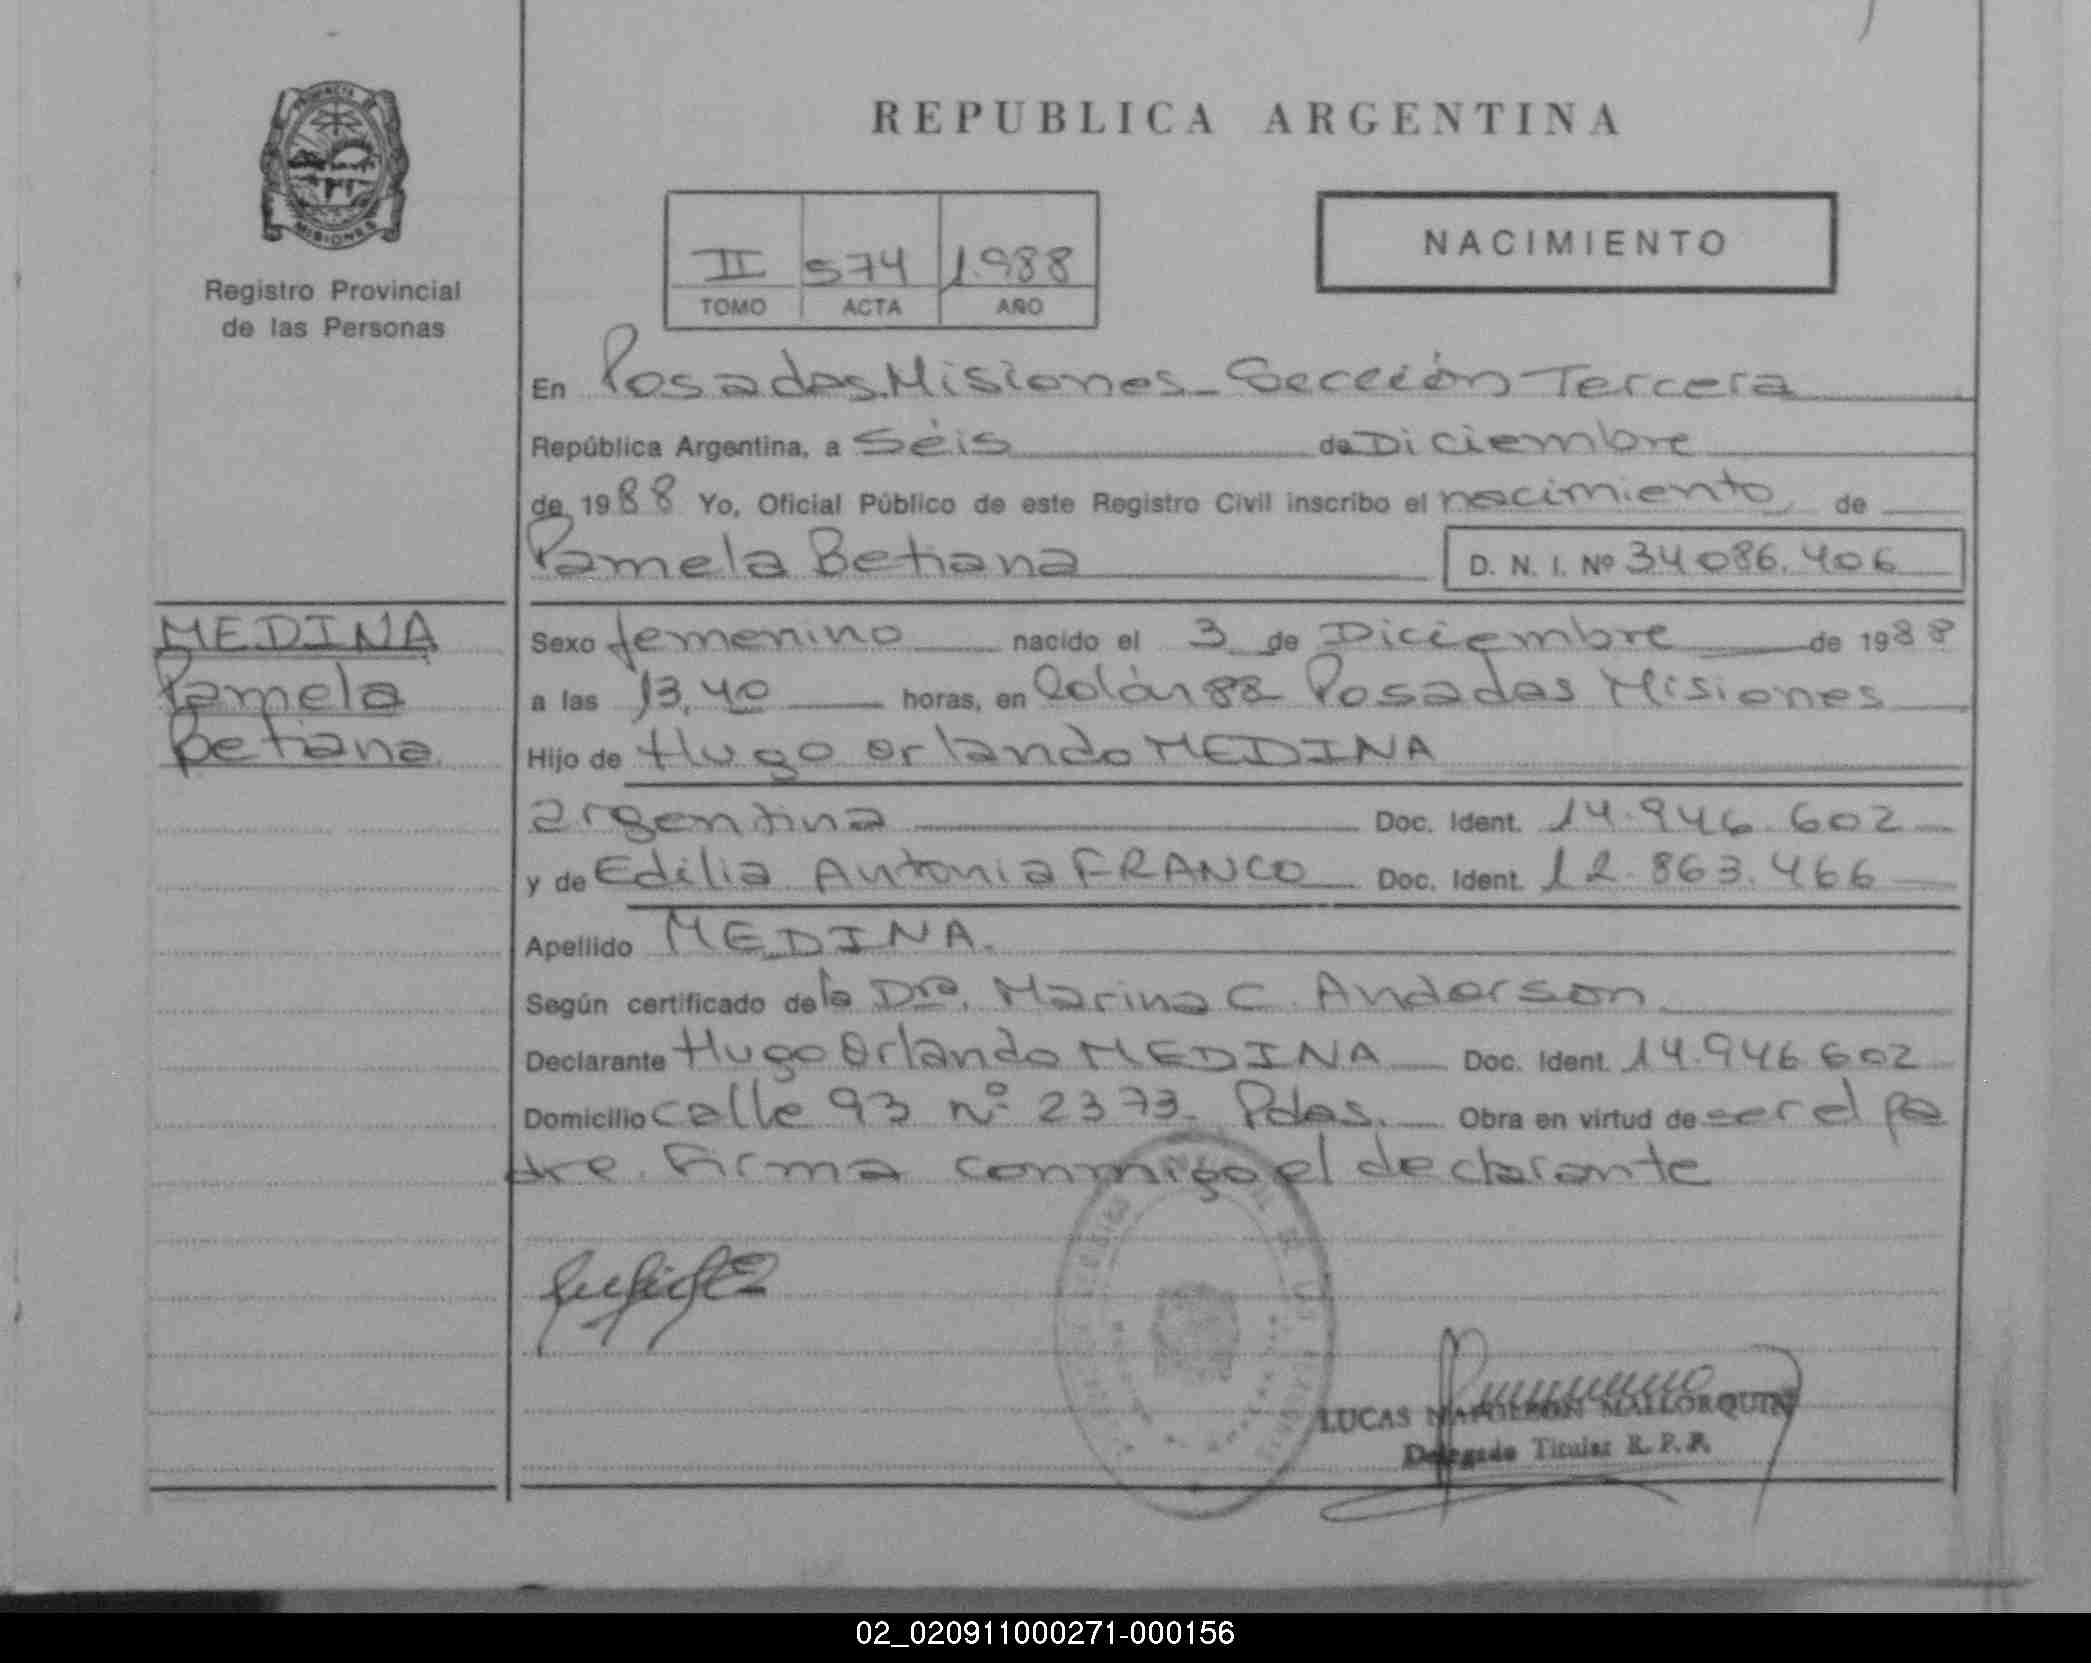 REPUBLICA ARGENTINA
PROVINCIA DE
MISIONES
Registro Provincial
de las Personas
NACIMIENTO
II 574 1.988
TOMO ACTA AÑO
En Posadas.Misiones-Sección Tercera
República Argentina, a Séis de Diciembre
de 1988 Yo, Oficial Público de este Registro Civil inscribo el nacimiento de
Pamela Betiana D. N. I. Nº 34086.406
MEDINA
Pamela
Betiana
Sexo femenino nacido el 3 de Diciembre de 1988
a las 13,40 horas, en Colón 82 Posadas Misiones
Hijo de Hugo Orlando MEDINA
argentina Doc. Ident. 14.946.602
y de Edilia Antonia FRANCO Doc. Ident. 12.863.466
Apellido MEDINA.
Según certificado de la Dra. Marina C. Anderson
Declarante Hugo Orlando MEDINA Doc. Ident. 14.946.602
Domicilio calle 93 nº 2373. Pdas. Obra en virtud de ser el pa
dre. Firma conmigo el declarante
LUCAS NAPOLEON MALLORQUIN
Delegado Titular R. P. P.
02_020911000271-000156